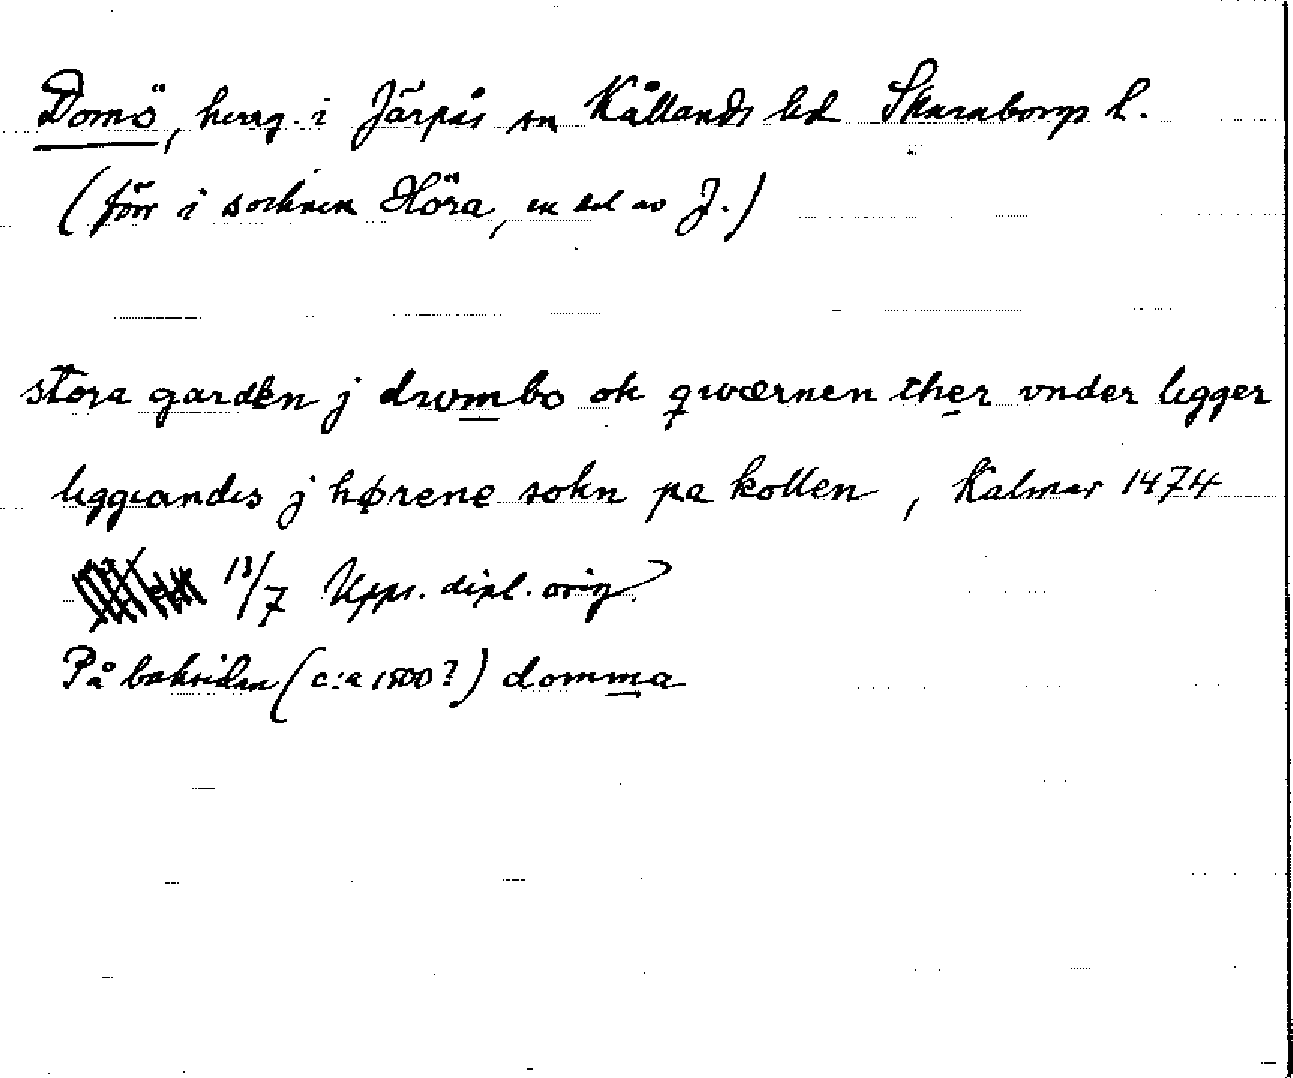 Domö, herrg. i Järpås sn Kållands hd Skaraborgs l.
(förr i socknen Höra, en del av J.)
stora garden j dwmbo ok qwærnen ther vnder ligger
liggiandis j hørene sokn pa kollen, Kalmar 1474
13/7 Upps. dipl. orig.
På baksidan (c:a 1500?) domma